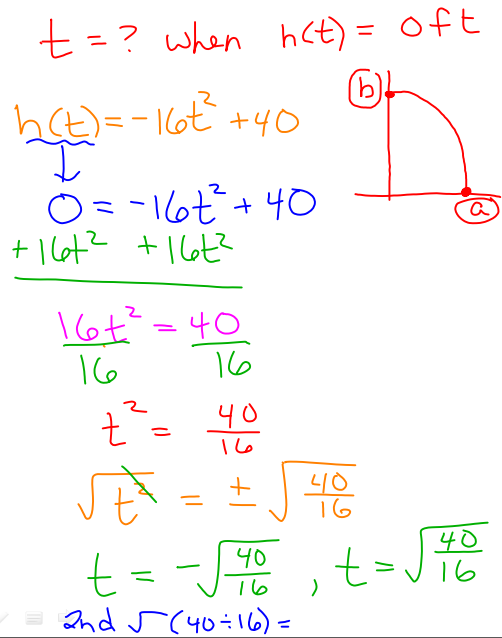 t = ? when h(t) = 0ft
b
h(t) = -16t² + 40
0 = -16t² + 40
a
+16t² +16t²
16t² = 40
16 16
t² = 40/16
√t² = ± √40/16
t = -√40/16 , t = √40/16
2nd √(40÷16) =